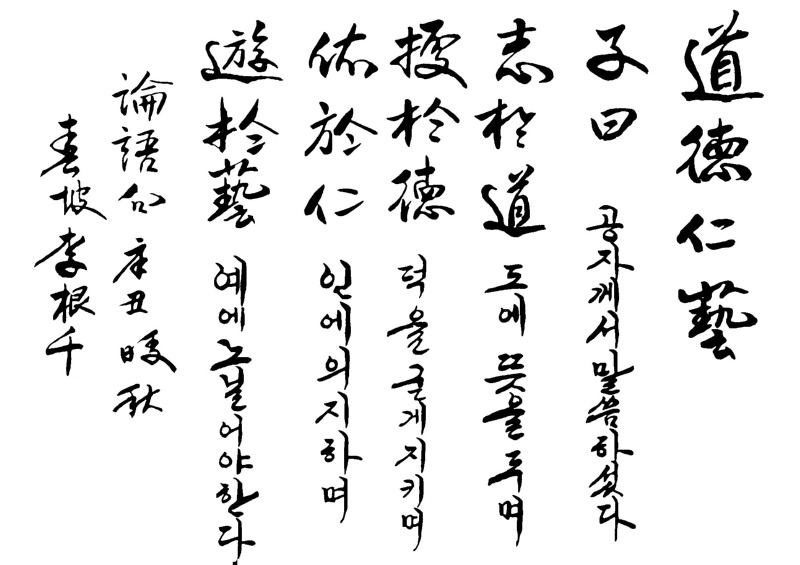 道德仁藝
子曰 공자께서 말씀하셨다
志於道 도에 뜻을 두며
據於德 덕을 굳게 지키며
依於仁 인에 의지하며
遊於藝 예에 노닐어야 한다
論語句 辛丑 暖秋
春坡 李根千